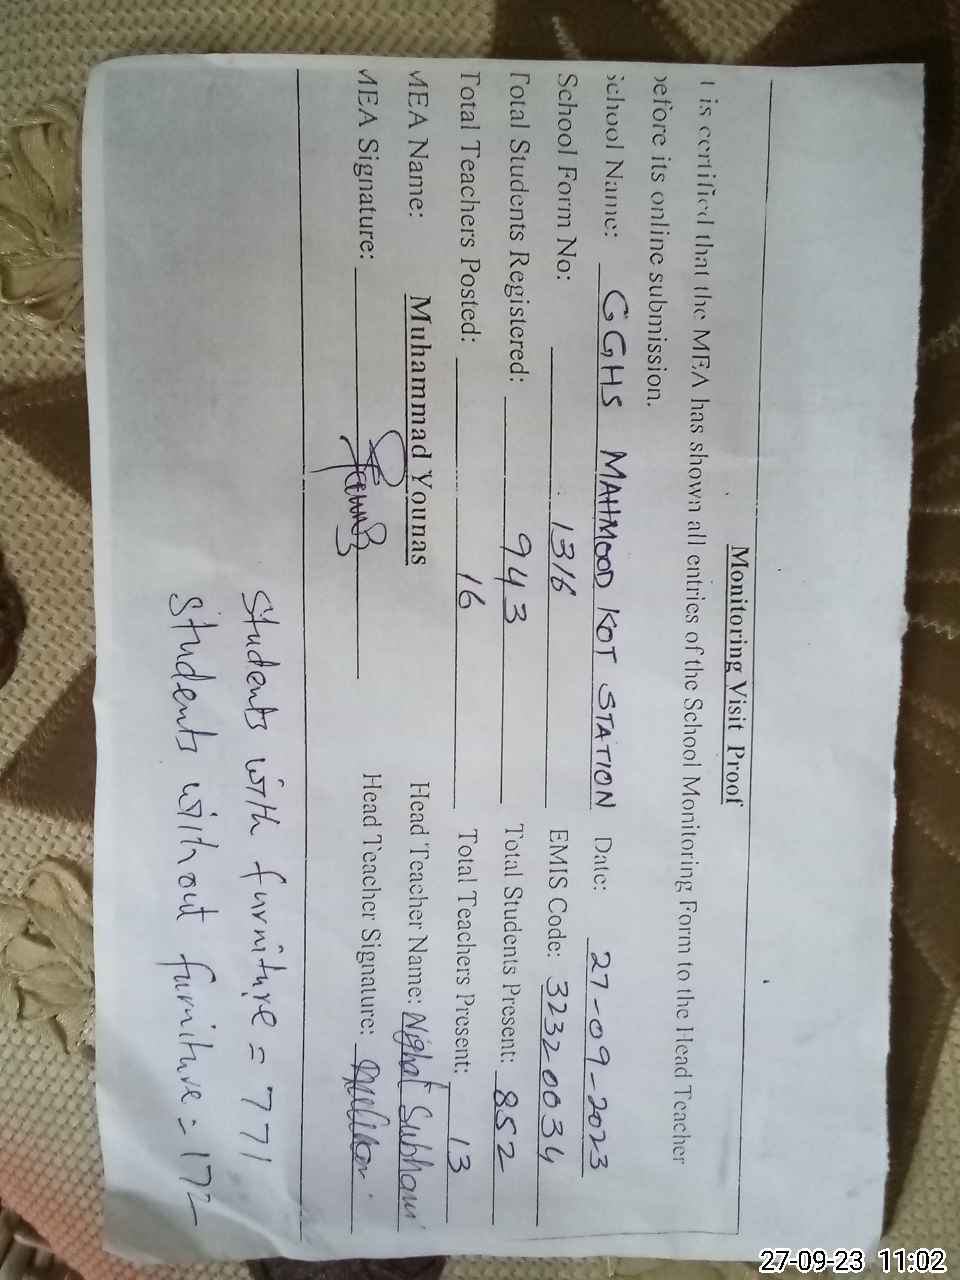 Monitoring Visit Proof
t is certified that the MEA has shown all entries of the School Monitoring Form to the Head Teacher
before its online submission.
School Name: GGHS MAHMOOD KOT STATION Date: 27-09-2023
School Form No: 1316 EMIS Code: 32320034
Total Students Registered: 943 Total Students Present: 852
Total Teachers Posted: 16 Total Teachers Present: 13
MEA Name: Muhammad Younas Head Teacher Name: Nighat Subhani
MEA Signature: Head Teacher Signature:
Students with furniture = 771
Students without furniture = 172
27-09-23 11:02